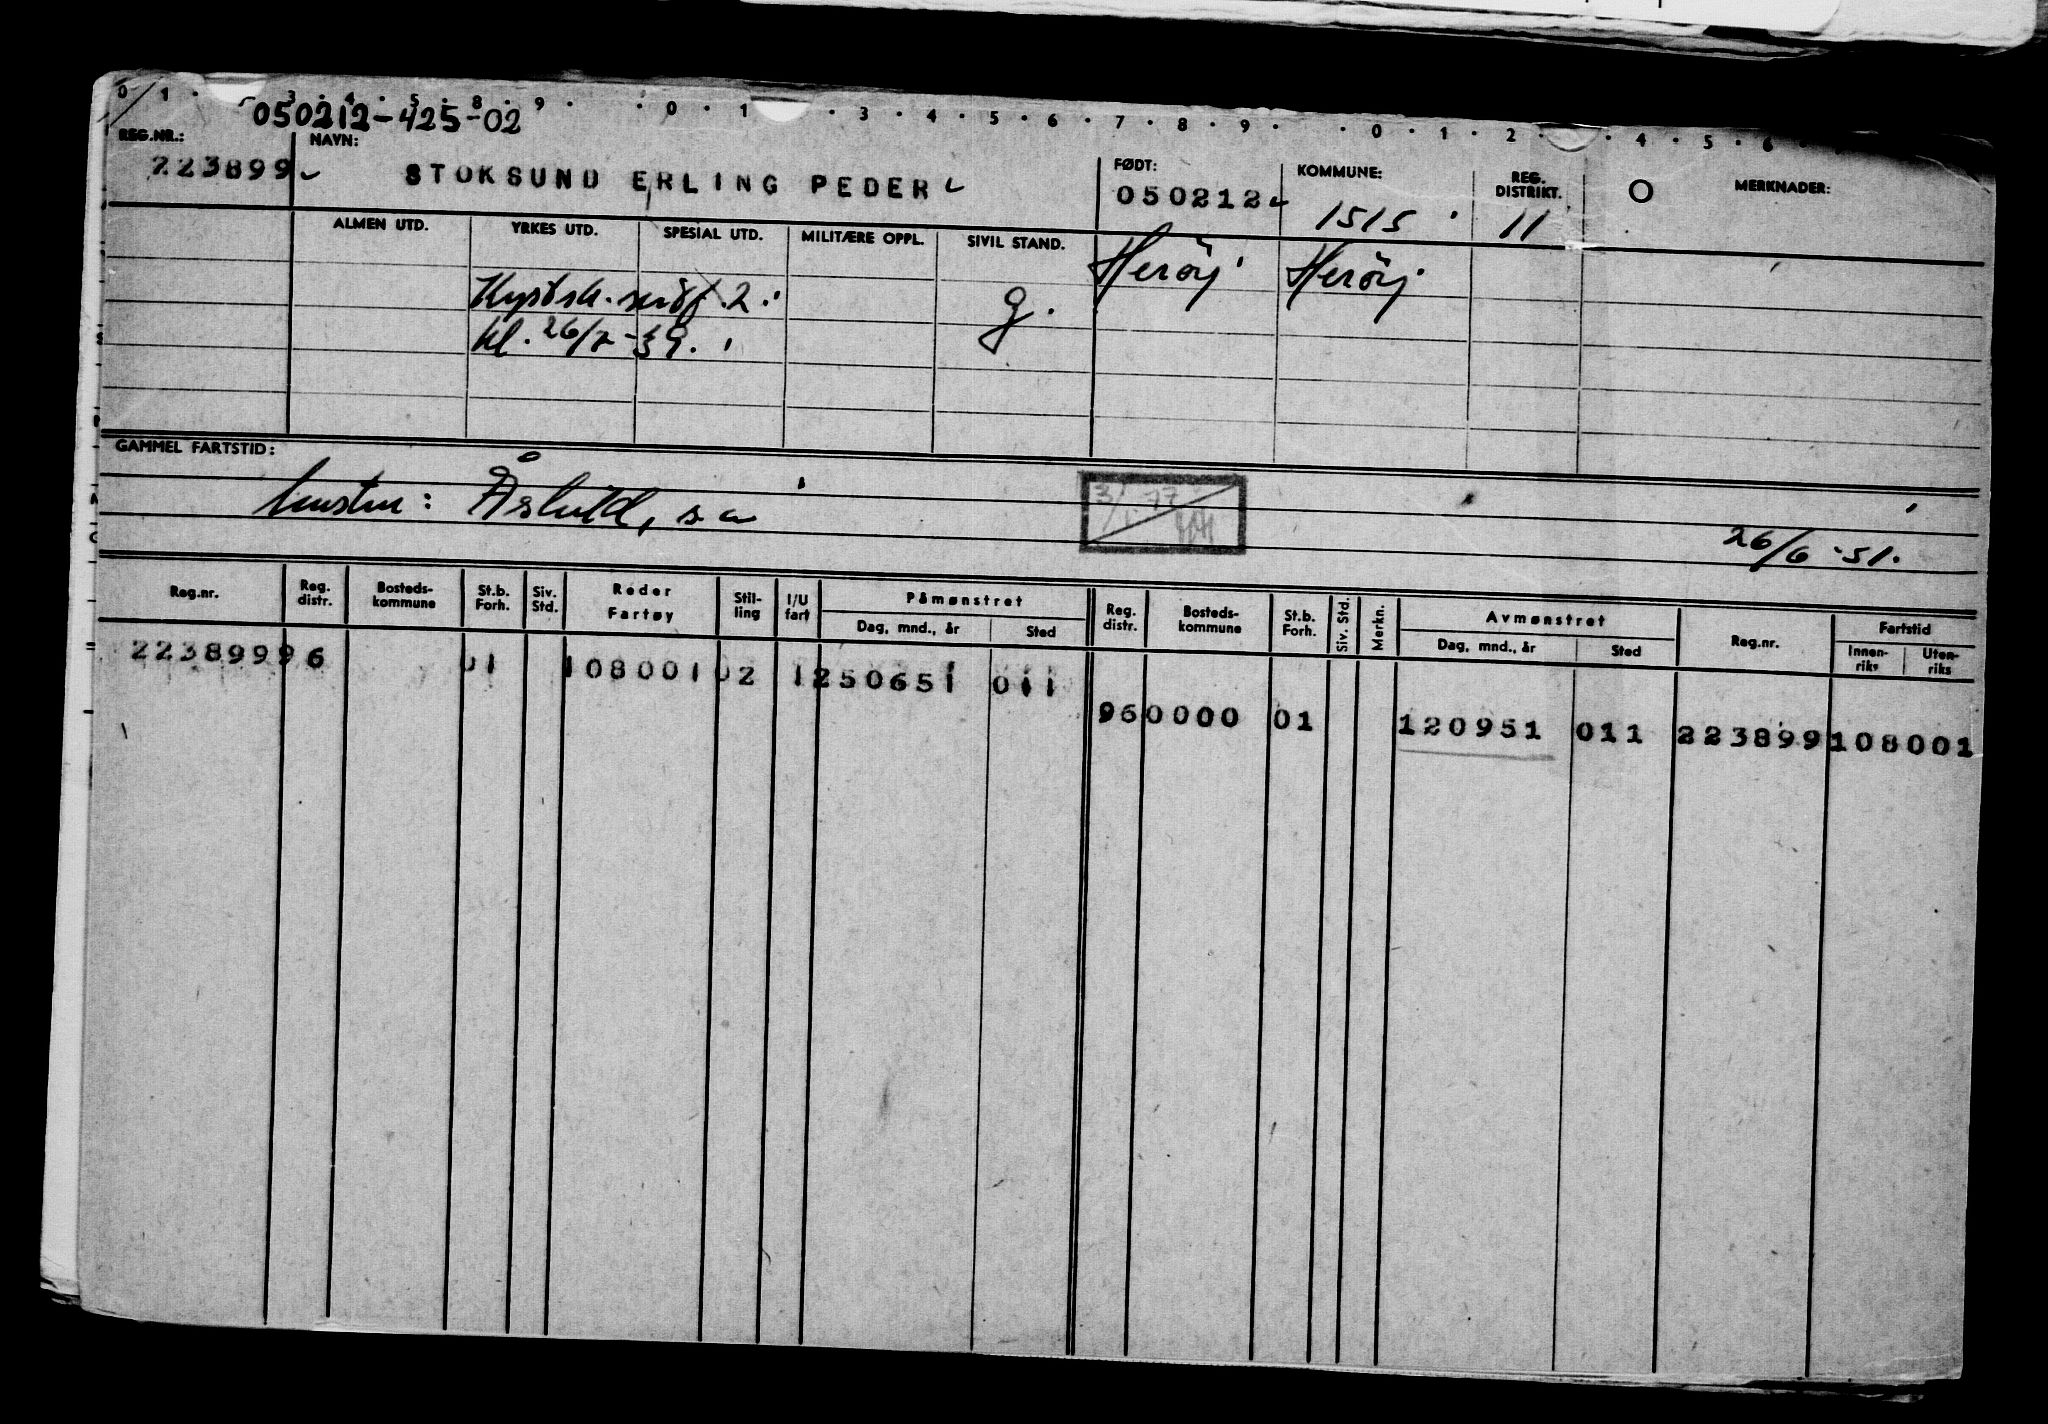 0 1 · 3 · 4 · 5 · 8 · 9 · · 0 · 1 · 3 · 4 · 5 · 6 · 7 · 8 · 9 · · 0 · 1 · 2 · · 4 · 5 · 6 ·
050212-425-02
REG.NR.: NAVN: FØDT: KOMMUNE: REG. DISTRIKT. O MERKNADER:
223899 STOKSUND ERLING PEDER 050212 1515 11
ALMEN UTD. YRKES UTD. SPESIAL UTD. MILITÆRE OPPL. SIVIL STAND. Herøy Herøy
Kystsk. 2.
kl. 26/7-39. g.
GAMMEL FARTSTID:
Åshild, 3/1.77
26/6-51.
Reg.nr. Reg. distr. Bosteds-kommune St.b. Forh. Siv. Std. Reder Fartøy Stil-ling I/U fart Påmønstret Dag, mnd., år Sted Reg. distr. Bosteds-kommune St.b. Forh. Siv. Std. Merkn. Avmønstret Dag, mnd., år Sted Reg.nr. Fartstid Innen-riks Uten-riks
223899 96 01 108001 02 1 250651 011
96 0000 01 120951 011 223899 108001